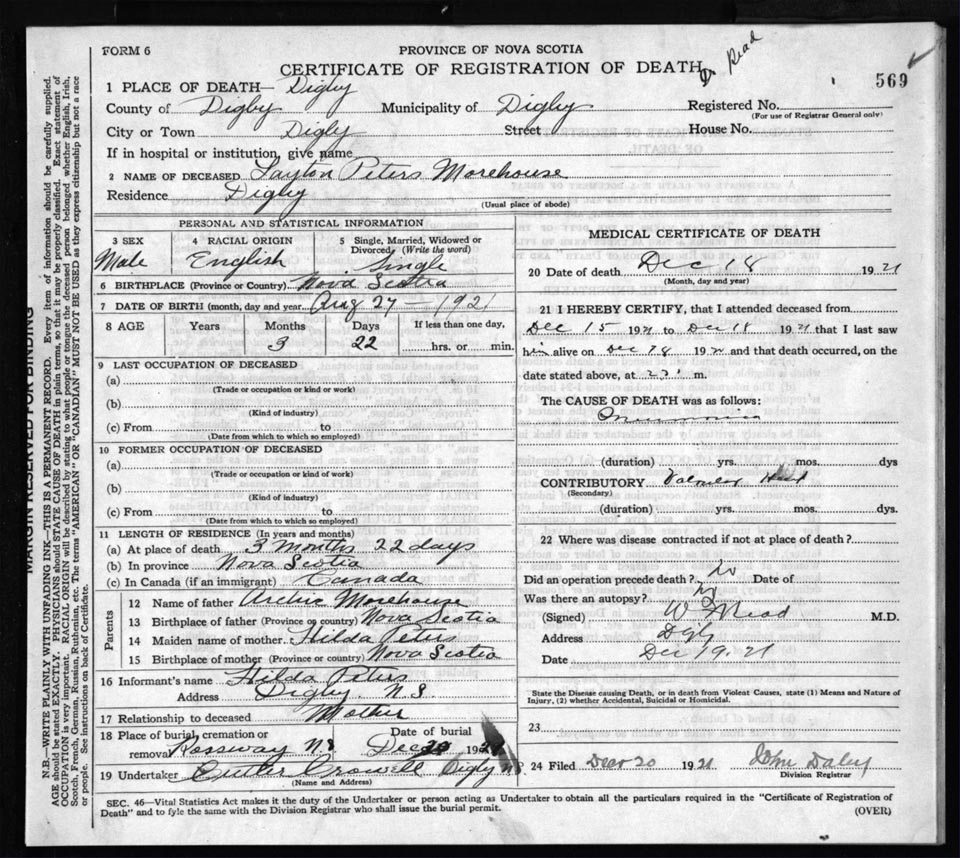 FORM 6
PROVINCE OF NOVA SCOTIA
CERTIFICATE OF REGISTRATION OF DEATH
Dr Read
569
1 PLACE OF DEATH— Digby
County of Digby Municipality of Digby Registered No.
(For use of Registrar General only)
City or Town Digby Street House No.
If in hospital or institution, give name
2 NAME OF DECEASED Layton Peters Morehouse
Residence Digby
(Usual place of abode)
PERSONAL AND STATISTICAL INFORMATION
3 SEX 4 RACIAL ORIGIN 5 Single, Married, Widowed or
Divorced (Write the word)
Male English Single
6 BIRTHPLACE (Province or Country) Nova Scotia
7 DATE OF BIRTH (month, day and year) Aug 27 — 1921
8 AGE Years Months Days If less than one day,
3 22 hrs. or min.
9 LAST OCCUPATION OF DECEASED
(a)
(Trade or occupation or kind or work)
(b)
(Kind of industry)
(c) From to
(Date from which to which so employed)
10 FORMER OCCUPATION OF DECEASED
(a)
(Trade or occupation or kind of work)
(b)
(Kind of industry)
(c) From to
(Date from which to which so employed)
11 LENGTH OF RESIDENCE (In years and months)
(a) At place of death 3 months 22 days
(b) In province Nova Scotia
(c) In Canada (if an immigrant) Canada
Parents
12 Name of father Archie Morehouse
13 Birthplace of father (Province or country) Nova Scotia
14 Maiden name of mother Hilda Peters
15 Birthplace of mother (Province or country) Nova Scotia
16 Informant's name Hilda Peters
Address Digby N.S
17 Relationship to deceased Mother
18 Place of burial, cremation or Date of burial
removal Rossway NS Dec 20 1921
19 Undertaker Crowell Digby NS
(Name and Address)
MEDICAL CERTIFICATE OF DEATH
20 Date of death Dec 18 1921
(Month, day and year)
21 I HEREBY CERTIFY, that I attended deceased from
Dec 15 1921 to Dec 18 1921 that I last saw
him alive on Dec 18 1921 and that death occurred, on the
date stated above, at m.
The CAUSE OF DEATH was as follows:
(duration) yrs. mos. dys
CONTRIBUTORY Heart
(Secondary)
(duration) yrs. mos. dys.
22 Where was disease contracted if not at place of death?
Did an operation precede death? No Date of
Was there an autopsy? No
(Signed) W Read M.D.
Address Digby
Date Dec 19. 21
State the Disease causing Death, or in death from Violent Causes, state (1) Means and Nature of
Injury, (2) whether Accidental, Suicidal or Homicidal.
23
24 Filed Dec 20 1921 John Daley
Division Registrar
SEC. 46—Vital Statistics Act makes it the duty of the Undertaker or person acting as Undertaker to obtain all the particulars required in the "Certificate of Registration of
Death" and to fyle the same with the Division Registrar who shall issue the burial permit.
(OVER)
MARGIN RESERVED FOR BINDING
N.B.—WRITE PLAINLY WITH UNFADING INK—THIS IS A PERMANENT RECORD. Every item of information should be carefully supplied.
AGE should be stated EXACTLY. PHYSICIANS should STATE CAUSE OF DEATH in plain terms, so that it may be properly classified. Exact statement of
OCCUPATION is very important. RACIAL ORIGIN will be described by stating to what people or tongue the deceased person belonged whether English, Irish,
Scotch, French, German, Russian, Ruthenian, etc. The terms "AMERICAN" OR "CANADIAN" MUST NOT BE USED as they express citizenship but not a race
or people. See instructions on back of Certificate.